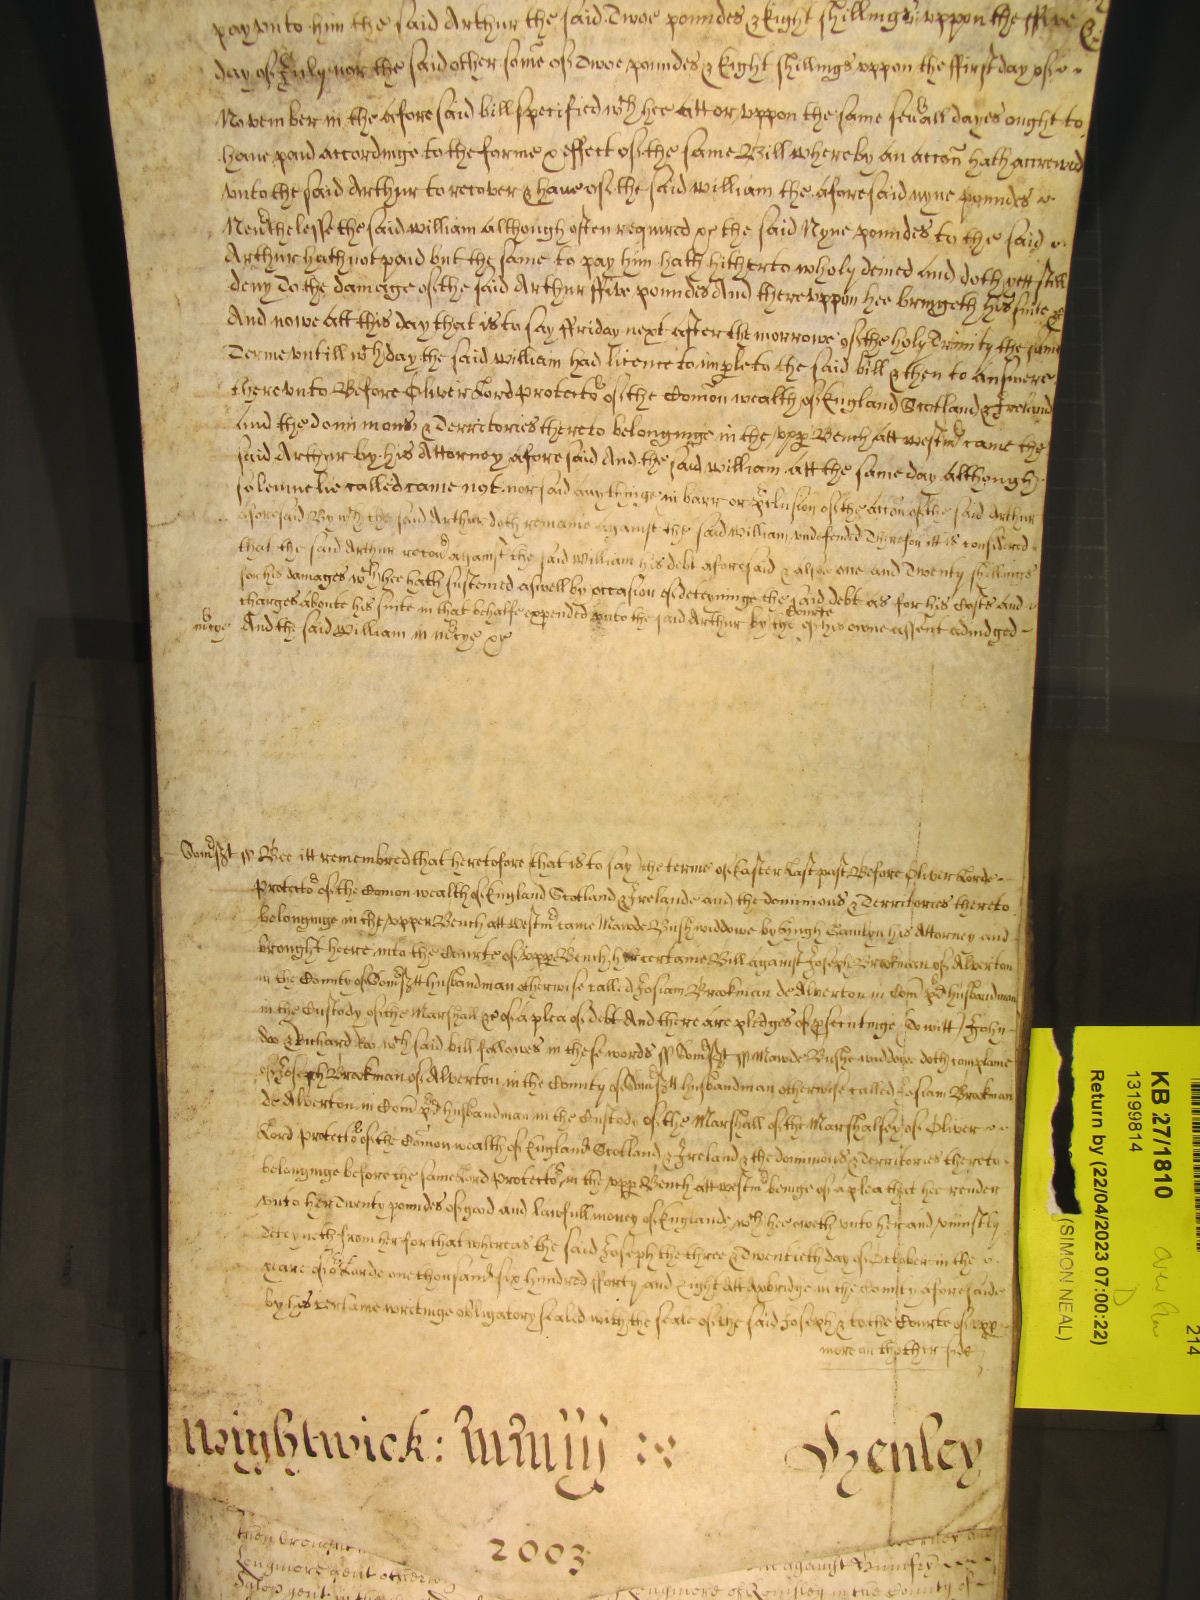 pay unto him the said Arthur the said Twoe poundes & Eight shillings uppon the ffive
day of July nor the said other some of Twoe poundes & Eight shillings uppon the ffirst day of
November in the aforesaid bill specified wch hee att or uppon the same sevall dayes ought to
have paid accordinge to the forme & effect of the same Bill whereby an accon hath accrewed
unto the said Arthur to recover & have of the said William the aforesaid nyne poundes
Nevthelesse the said William although often required &c the said Nyne poundes to the said
Arthur hath not paid but the same to pay him hath hitherto wholy denied And doth yett still
deny To the damage of the said Arthur ffive poundes And thereuppon hee bringeth his suite &c
And nowe att this day that is to say ffriday next after the morrowe of the holy Trinity the same
Terme untill wch day the said William had licence to imple to the said bill & then to answere
thereunto Before Oliver Lord Protector of the Comon wealth of England Scotland & Ireland
And the dominions & Territories thereto belonginge in the upp Bench att westmr came the
said Arthur by his Attorney aforesaid And the said William att the same day Although
solemnelie called came not nor said any thinge in barr or pclusion of the accon of the said Arthur
aforesaid By wch the said Arthur doth remaine against the said William undefended Therefore itt is considered
that the said Arthur recovr against the said William his debt aforesaid & alsoe one and Twenty shillings
for his damages wch hee hath susteined aswell by occasion of deteyninge the said debt as for his Costs and
charges aboute his suite in that behalfe expended unto the said Arthur by the Courte of his owne assent adiudged
mcye And the said William in mcye &c
Somsett ss Bee itt remembred that heretofore that is to say the terme of Easter Last past Before Oliver Lorde
Protector of the Comon wealth of England Scotland & Irelande and the dominions & Territories thereto
belonginge in the upper Bench att westmr came Mawde Bush widdowe by Hugh his Attorney and
brought heere into the Courte of upp Bench certaine Bill against Joseph Brookman of Alverton
in the County of Somsett husbandman otherwise called Josiam Brookman de Alverton in Com pd husbandman
in the Custody of the Marshall &c of a plea of debt And there are pledges of psecutinge (to witt) John
doo & Richard Roo wch said bill followes in these words ss Somsett ss Mawde Bushe widdowe doth complaine
of Joseph Brookman of Alverton in the County of Somsett husbandman otherwise called Josiam Brookman
de Alverton in Com pd husbandman in the Custody of the Marshall of the Marshalsey of Oliver
Lord Protector of the Comon wealth of England Scotland & Ireland & the dominions & Territories thereto
belonginge before the same Lord Protector in the upp Bench att westmr beinge of a plea that hee render
unto her Twenty poundes of good and Lawfull money of Englande wch hee oweth unto her and uniustly
deteyneth from her for that whereas the said Joseph the three & Twentieth day of October in the
yeare of or Lorde one thousand six hundred fforty and Eight att Axbridge in the County aforesaide
by his certaine writinge obligatory sealed with the seale of the said Joseph & to the Courte of upp
more on thother side
Wightwick: MMiij
Henley
2003
then brought
Longmore gent otherwise
against Humfry
Salop gent in the
Longmore of Romsley in the County of
KB 27/1810
13199814
Return by (22/04/2023 07:00:22)
(SIMON NEAL)
214
D